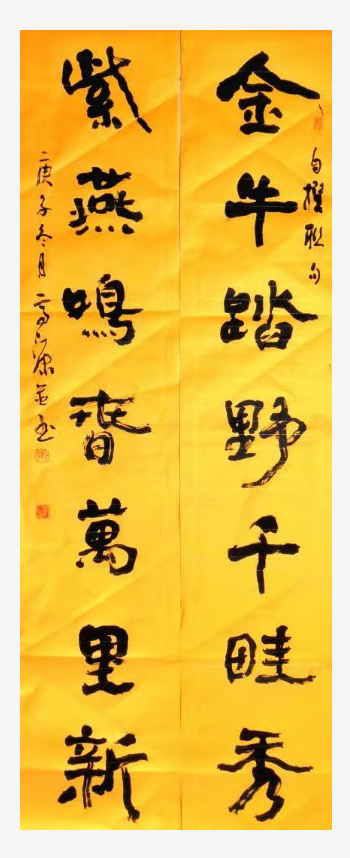 金牛踏野千畦秀
自撰联句
紫燕鸣春萬里新
庚子冬月